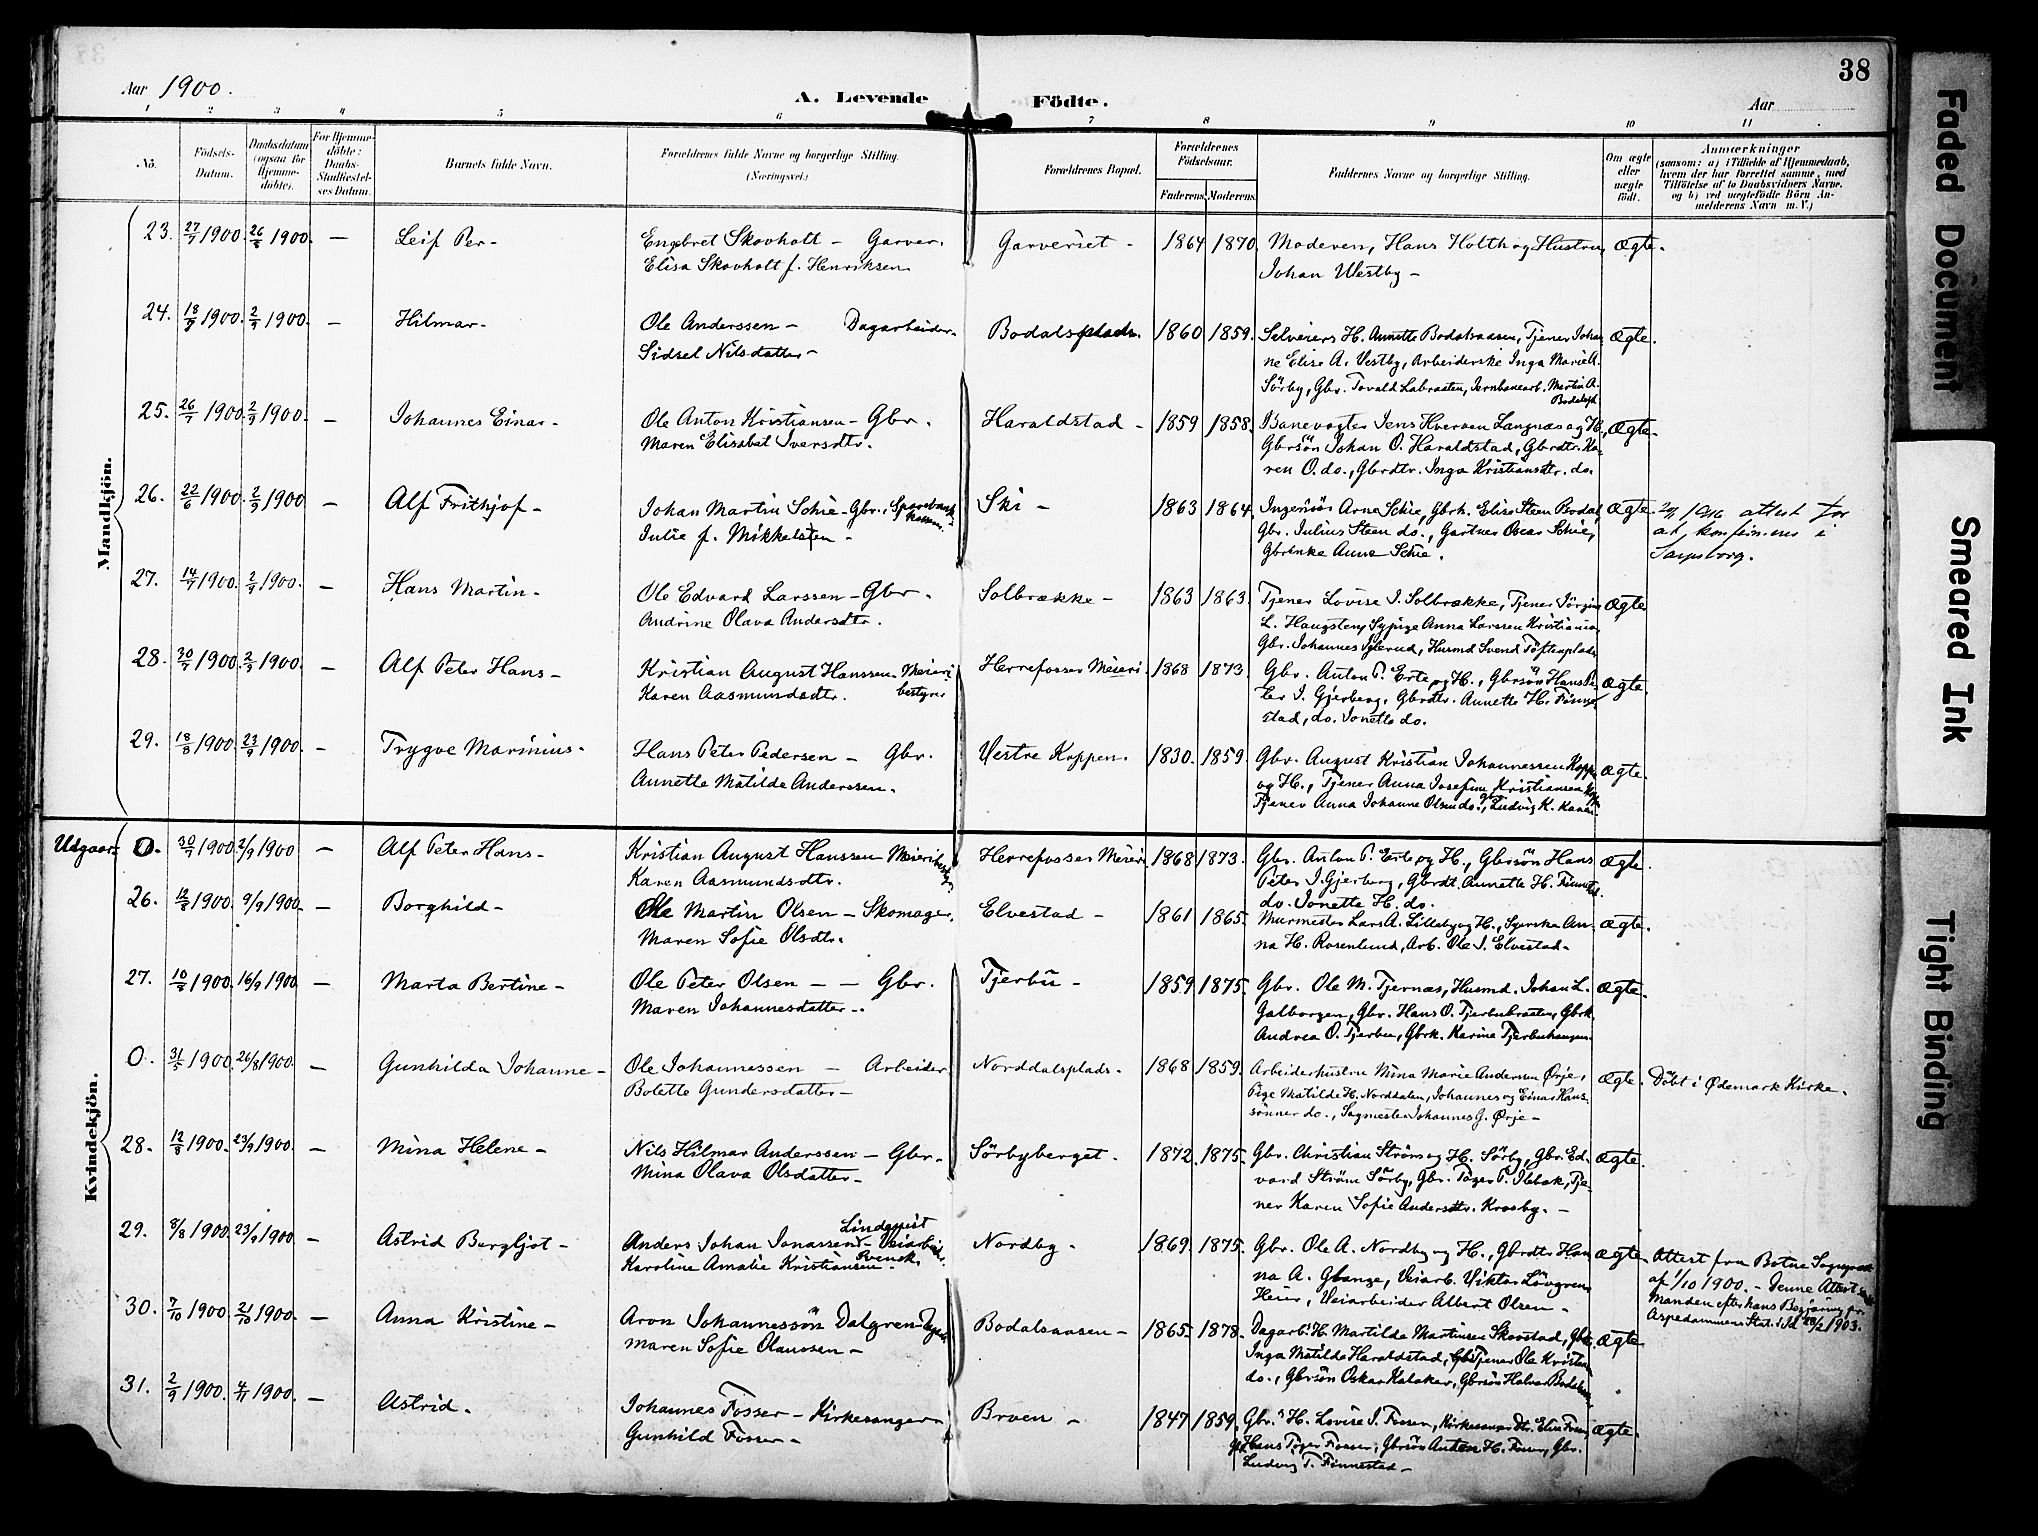 38
Aar 1900.
A. Levende Födte.
Aar
1 2 3 4 5 6 7 8 9 10 11
No.
Födsels-Datum.
Daabsdatum (ogsaa for Hjemme-döbte).
For Hjemme-döbte: Daabs-Stadfæstel-ses Datum.
Barnets fulde Navn.
Forældrenes fulde Navne og borgerlige Stilling.
(Næringsvei.)
Forældrenes Bopæl.
Forældrenes Födselsaar.
Faderens. Moderens.
Faddernes Navne og borgerlige Stilling.
Om ægte eller uægte födt.
Anmærkninger
(saasom: a) i Tilfælde af Hjemmedaab, hvem der har forrettet samme, med Tilföielse af to Daabsvidners Navne, og b) ved uægtefödte Börn An-melderens Navn m. V.)
Mandkjön.
23. 27/7 1900. 26/8 1900. — Leif Per- Engebret Skovholt - Garver. Garveriet - 1864 1870. Moderen, Hans Holth og Hustru, Ægte.
Elisa Skovholt f. Henriksen Johan Westby -
24. 18/7 1900. 2/9 1900. — Hilmar- Ole Anderssen - Dagarbeider. Bodalsplads. 1860 1859. H. Annette Bodalsaasen, Tjener Johan Ægte.
Sidsel Nilsdatter - ne Elise A. Vestby, Arbeiderske Inga Marie A.
Sörby, Gbr. Labraaten, Jernbanearb. Martin A. Bodalspl.
25. 26/7 1900. 2/9 1900. — Johannes Einar- Ole Anton Kristiansen - Gbr. Haraldstad - 1859 1858. Banevogter Jens Langnæs og H., Ægte.
Maren Elisabet Iversdtr. Gbrsön Johan O. Haraldstad, Gbrdtr. Ka-
ren O. do., Gbrdtr. Inga Kristiansdtr. do.
26. 22/6 1900. 2/9 1900 — Alf Frithjof - Johan Martin Schie - Gbr., Ski - 1863 1864. Ingeniör Arne Schie, Gbrk. Elise Steen Bodal, Ægte. attest for
Julie f. Mikkelsten - Gbr. Julius Steen do., Gartner Oscar Schie, at konfirmeres i
Gbrenke Anne Schie. Sarpsborg.
27. 14/7 1900. 2/9 1900. — Hans Martin - Ole Edvard Larssen - Gbr. Solbrække - 1863 1863. Tjener Lovise J. Solbrække, Tjener Jörgine Ægte
Andrine Olava Andersdtr. L. Haugsten, Sypige Anna Larssen Kristiania,
Gbr. Johannes, Husmd Svend Töftenplads
28. 30/7 1900. 2/9 1900. — Alf Peter Hans - Kristian August Hanssen - Meieri Herrefosser Meieri. 1868 1873. Gbr. Anton P. Erte og H., Gbrsön Hans Pe- Ægte.
Karen Aasmundsdtr. bestyrer ter I. Gjerberg, Gbrdtr. Annette H. Finne-
stad, do. Jonette do.
29. 18/8 1900. 23/9 1900. — Trygve Marinius - Hans Peter Pedersen - Gbr. Vestre Koppen. 1830. 1859. Gbr. August Kristian Johannessen Ægte.
Annette Matilde Anderssen. og H., Tjener Anna Josefine Kristiansen
Tjener Anna Johanne Olsen do., Ludvig K.
Kvindekjön.
Udgaar. 0. 30/7 1900. 2/9 1900 — Alf Peter Hans - Kristian August Hanssen Meieribestyr. Herrefosser Meieri 1868 1873. Gbr. Anton P. Erte og H., Gbrsön Hans Ægte.
Karen Aasmundsdtr. Peter I. Gjerberg, Gbrdt. Annette H. Finnestd.
do. Jonette H. do.
26. 12/8 1900. 9/9 1900. — Borghild - Ole Martin Olsen - Skomager. Elvestad - 1861 1865. Murmester Lars A. Lilleby og H., Syerske An- Ægte.
Maren Sofie Olsdtr. na H. Rosenlund, Arb. Ole I. Elvestad -
27. 10/8 1900. 16/9 1900. — Marta Bertine - Ole Peter Olsen - - Gbr. Tjerbu - 1859 1875. Gbr. Ole M. Tjernæs, Husmd. Johan L. Ægte.
Maren Johannesdatter - Galborgen, Gbr. Hans O. Tjerbubraaten, Gbrk.
Andrea O. Tjerbu, Gbrk. Karine Tjerbuhaugen.
0. 31/5 1900. 26/8 1900. — Gunhilda Johanne - Ole Johannessen - Arbeider Norddalsplads. 1868 1859. Arbeiderhustru Mina Marie Andersen Ørje, Ægte. Döbt i Ødemark Kirke.
Bolette Gundersdatter - Pige Matilde H. Norddalen, Johannes og Einar Hans-
sönner do., Sagmester Johannes G. Ørje -
28. 12/8 1900. 23/9 1900. — Mina Helene - Nils Hilmar Anderssen - Gbr. Sörbyberget. 1872. 1875. Gbr. Christian Ström og H. Sörby, Gbr. Ed- Ægte.
Mina Olava Olsdatter - vard Ström Sörby, Gbr. Töger P. Ilebæk, Tje-
ner Karen Sofie Andersdtr. Krosby. -
29. 8/8 1900. 23/9 1900 — Astrid Bergljot - Anders Johan Jonassen Lindqvist - Veiarbeid. Nordby - 1869. 1875. Gbr. Ole A. Nordby og H., Gbrdtr Han- Ægte. Attest fra Botne Sognepræst
Karoline Amalie Kristiansen. Svensk. na A. Glenge, Veiarb. Viktor Lövgren af 1/10 1900. - Denne Attest sendt
Heier, Veiarbeider Albert Olsen - Manden efter hans Begjæring pr.
Aspedammens Stat. i Id 28/2 1903.
30. 7/10 1900. 21/10 1900. — Anna Kristine - Aron Johannessön Dalgren Bodalsaasen - 1865. 1878. Dagarb. H. Martilde Martinsen Skovstad, Ægte
Maren Sofie Olaussen - Inga Matilde Haraldstad, Tjener Ole Kristian
do., Gbrsön Oskar Kalaker, Gbrsön Halvor
31. 2/9 1900. 4/11 1900. — Astrid. Johannes Fosser - Kirkesanger Broen - 1847 1859. Gbr. H. Lovise J. Fosser, Kirkesanger Dtr. Elise Fosser, Ægte.
Gunhild Fosser - Hans Töger Fosser, Gbrsön Anton H. Fosser, Gbr.
Ludvig T. Finnestad -
Faded Document
Smeared Ink
Tight Binding